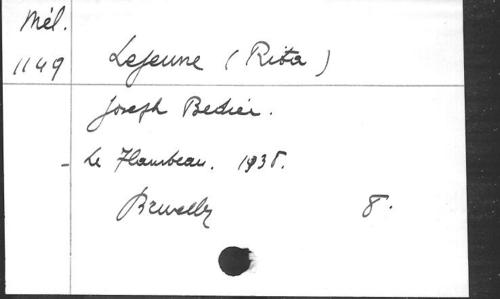 Mél.
1149
Lejeune (Rita)
Joseph Bédier.
- Le Flambeau. 1938.
Bruxelles 8.